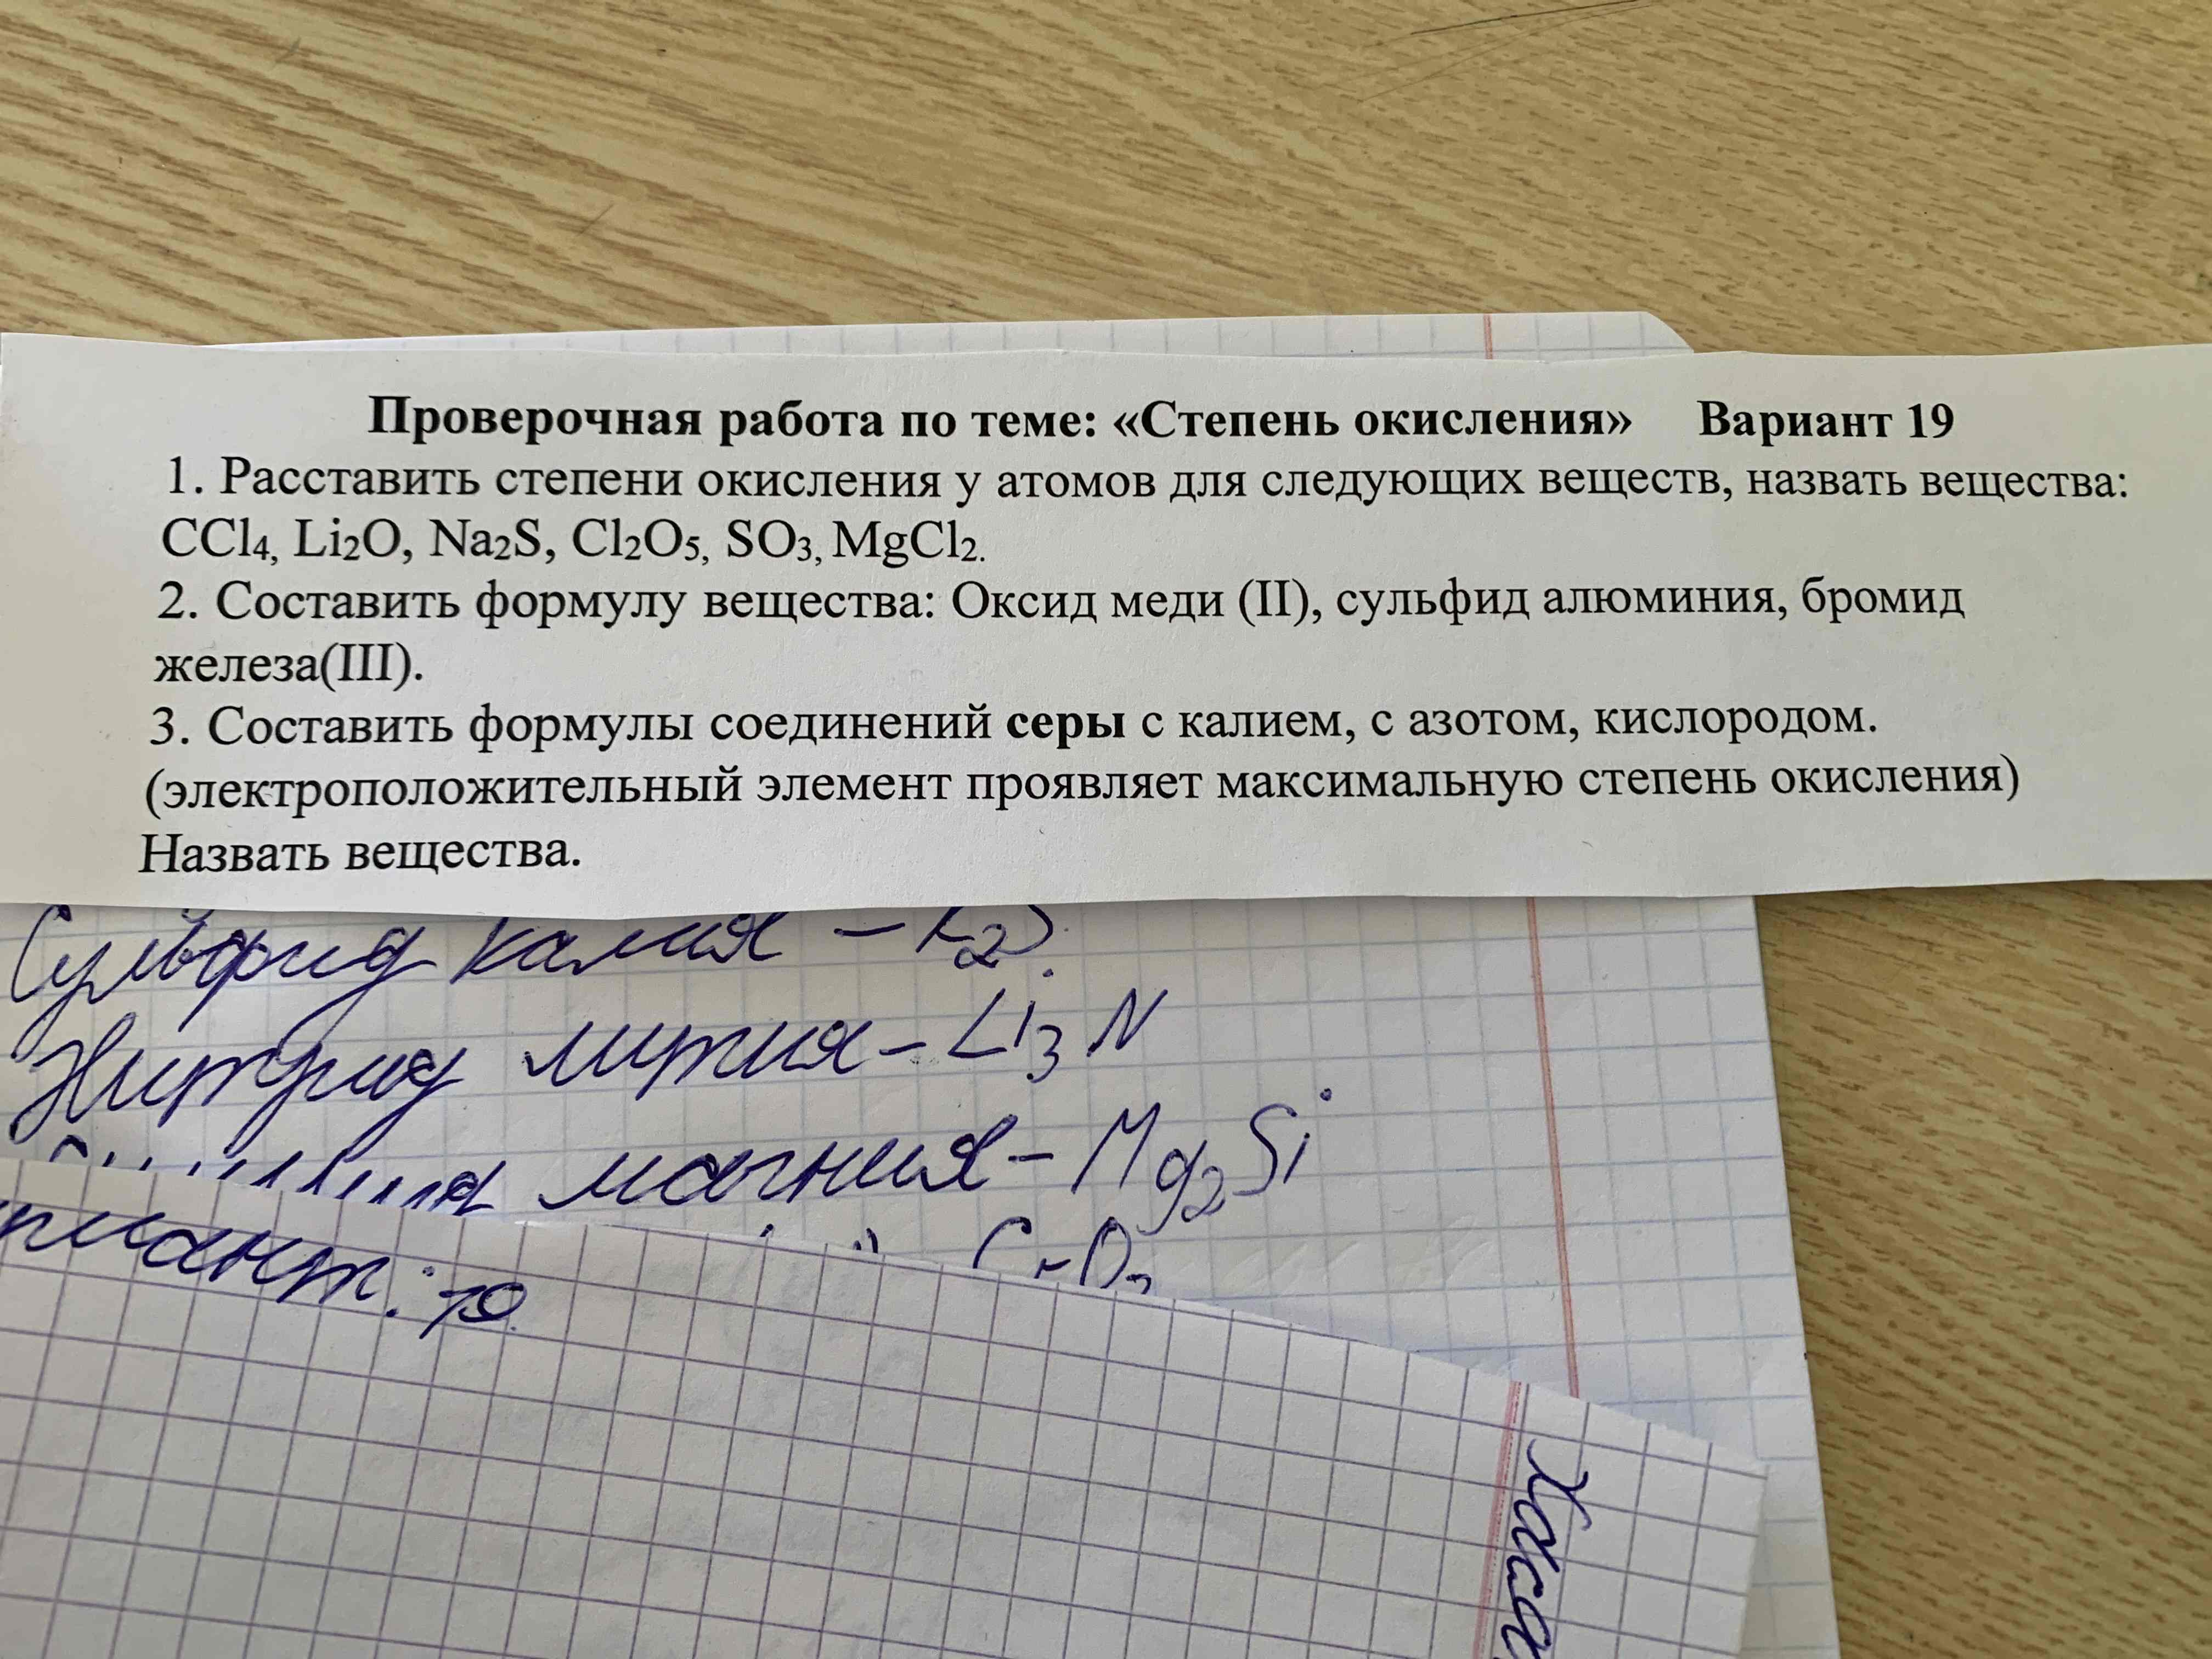 Проверочная работа по теме: «Степень окисления» Вариант 19
1. Расставить степени окисления у атомов для следующих веществ, назвать вещества:
CCl₄, Li₂O, Na₂S, Cl₂O₅, SO₃, MgCl₂.
2. Составить формулу вещества: Оксид меди (II), сульфид алюминия, бромид
железа(III).
3. Составить формулы соединений серы с калием, с азотом, кислородом.
(электроположительный элемент проявляет максимальную степень окисления)
Назвать вещества.
Сульфид калия – K₂S.
Нитрид лития – Li₃N
магния – Mg₂Si